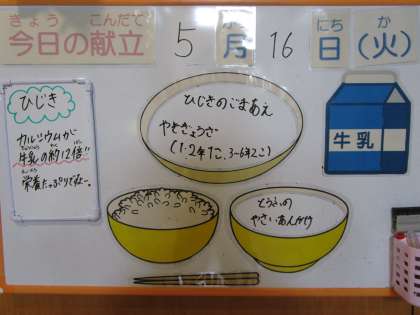 きょう こんだて
今日の献立
5月16日(火)
にち か
ひじき
カルシウムが
牛乳の約12倍!!
栄養たっぷりでね〜。
ひじきのごまあえ
やきぎょうざ
(1・2年1こ、3〜6年2こ)
牛乳
とうふの
やさいあんかけ